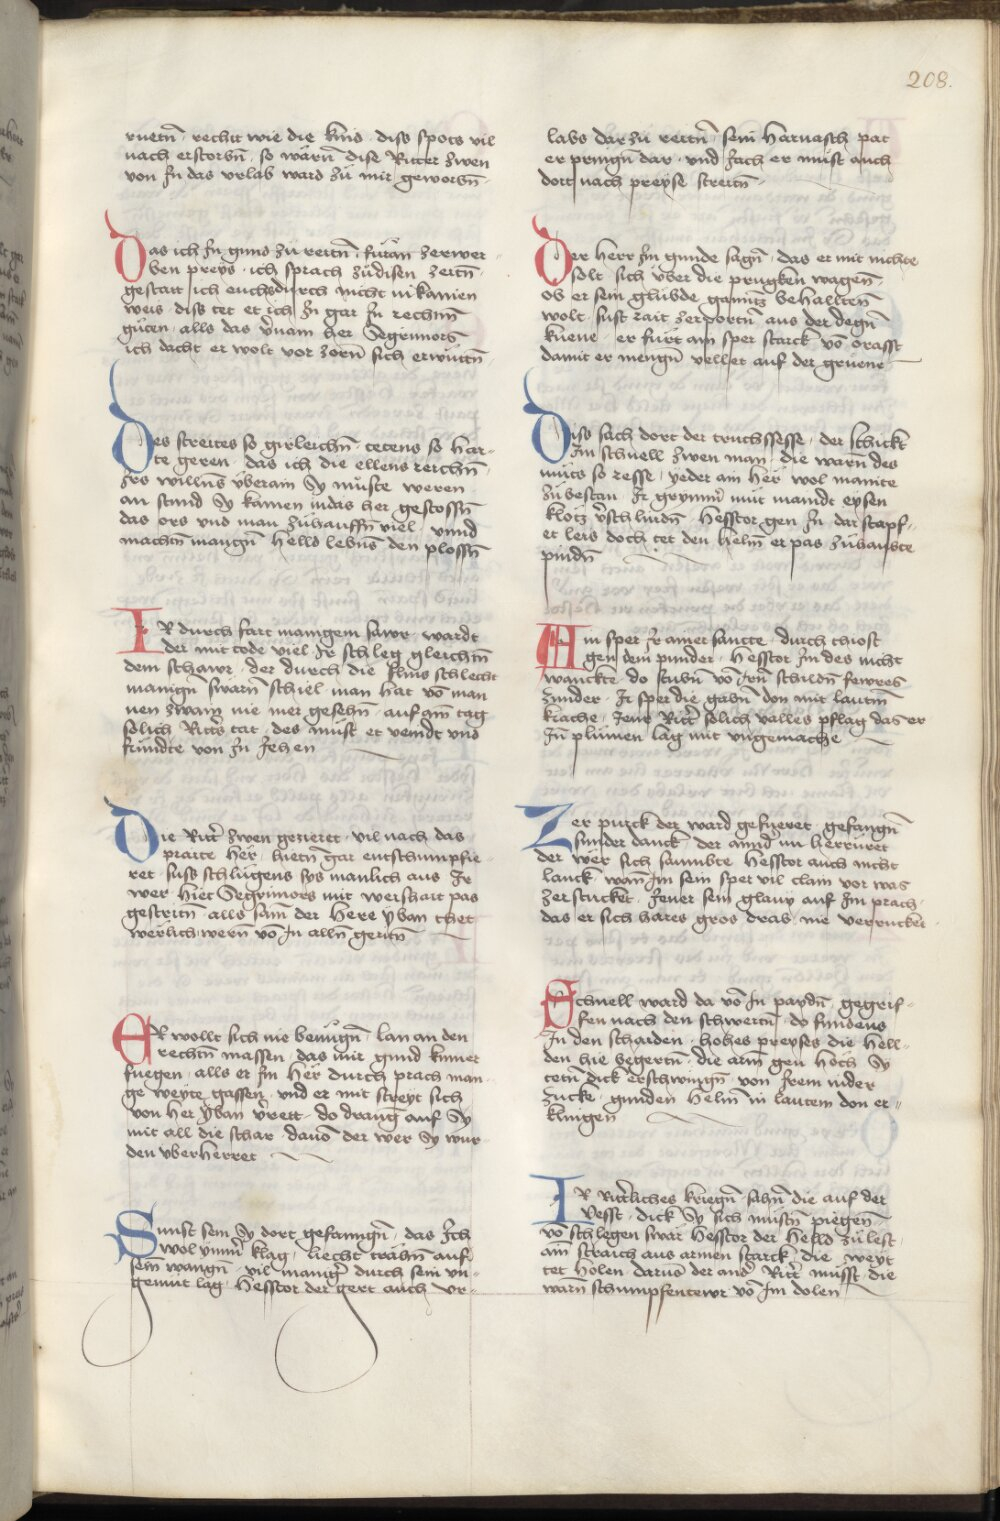 208.
ruetn̄ · recht wie die kins · diss spots vil
nach erstorbn̄ · so wārn̄ dise Ritter zwen
von Jn das vrlab ward zů mir geworbn̄
Das ich Jn guns zů reitn̄ · fůran zerwer-
ben preys · ich sprach zůdisen zeitn̄
gestatt ich euchs durch nicht in kainen
weis · diss tet et ich Jn gar Jn rechtm̄
gůten · alls das v̄nam her Segrimors
ich dacht er wolt vor zorn̄ sich erwůttn̄
Des streites so girleichn̄ tetens so har-
te geren · das ich die ellens reichn̄
Irs willns v̈berain Sy můste weren
an stund Sy kamen indas her gestossn̄
das ors vnd man zůhauffn̄ viel · vnnd
machtn̄ mangn̄ hellds lebns den plossn̄
IR durch fart manigem sawr · wardt
der mit tode viel · Ir schleg gleichn̄
dem schawr · der durch die klins schlecht
manign̄ swarn̄ schiel · man hat vō man
nen zwain nie mer gesehn̄ · auf ain̄ tag
solich Ritters tat · des můst et veindt vnd
freundte von Jn Jehen
Die Ritt̄ zwen gezieret · vil nach das
praite her · hietn̄ gar entschumpfie
ret · suss schlůgens sys manlich aus Ir
wer · hiet Segrimors mit weishait pas
gestritn̄ · alls sam der here yban thet
werlich wern̄ vō Jn alln̄ geritn̄
ER wollt sich nie benůgn̄ · lan an den
rechtn̄ massen · das mir gund kumer
fuegen · alls er Jm her durch prach man-
ge weyte gassen · vnd er mit streyt sich
von her yban v̄rert · do drang auf Sy
mit all die schar · dauō der wer Sy wur-
den vberherret
Sunst sein Sy dort gefanngn̄ · das Ich
wol ymm̄ klag · liecht trähn̄ auf
sein̄ wangn̄ · vil maniḡ durch sein vn-
gemůt lag · Hesstor der gert auch vr-
labs dar zů reitn̄ · sein harnasch pat
er pringn̄ dar · vnd Jach er můst auch
dort nach preyse streitn̄
Der herr Jm gunde sagn̄ · das er mit nichte
solt sich v̈ber die prugken wagen̄
ob er sein glubde gantz behalltn̄
wolt · sust rait zerportn̄ aus der degn̄
kuene · er fůrt ain sper starck vō drasst
damit er mengn̄ vellet auf der grůene
Diss sach dort der truchssesse · der schickt
Im schnell zwen man · die warn̄ des
můts so resse · yeder ain her wol mante
zůbestan · Ir grymm̄ můt mandt eysen
klotz v̄schlindn̄ · Hesstor gen Jn dar stapf-
et leis doch tet den helm̄ er pas zůhaubte
pindn̄
Ain sper Jr ainer sancte · durch thiost
gen dem punder · Hesstor Jm des nicht
wanckte · do stubn̄ vō irn̄ schildn̄ fewres
zunder · Ir sper die gabn̄ don mit lautm̄
krache · Jener Ritt̄ solich valles pflag das er
Jn plůmen lag mit vngemache
Zer purck der ward gefueret · gefangn̄
sunder danck · der annd̄ in berrůret
der wer sich saumbte Hesstor auch nicht
lanck · wann̄ Im sein sper vil clain vor was
zerstucket · Jener sein glauy auf Jm prach
das er sich hares gros dras · nie verrucket
Schnell ward da vō Jn paydn̄ gegrif-
fen nach den schwertn̄ · do fundens
Jn den schaiden · hohes preyses die hell-
den hie begertn̄ · die arm̄ gen hoch Sy
tetn̄ dick erschwingn̄ · von Jrem nider
zucke · gunden helm̄ in lautem don er-
klingen
IR Rittr̄liches kriegn̄ · sahn̄ die auf der
Vesst · dick Sy sich můstn̄ piegen̄
vō schlegen swār Hesstor der helld zůlest
ain̄ straich aus armen starck · die weyt
tet holen · darūb der and̄ Ritt̄ můsst die
warn̄ schumpfentewr vō Jm dolen